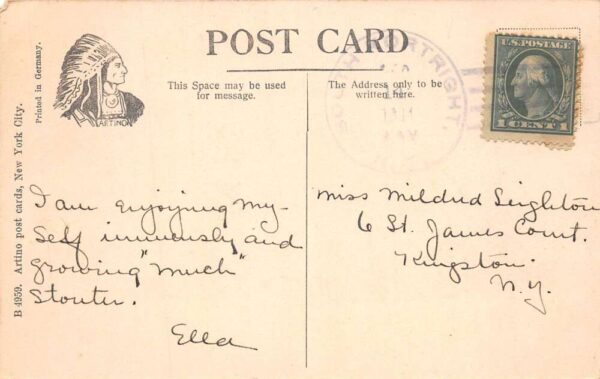 POST CARD
This Space may be used
for message.
The Address only to be
written here.
Printed in Germany.
B 4959. Artino post cards, New York City.
ARTINO
U.S. POSTAGE
1 CENT 1
SOUTH KORTRIGHT,
I am enjoying my-
self immensely and
growing "much"
Stouter.
Ella
Miss Mildred Leighton
6 St. James Court.
Kingston.
N.Y.